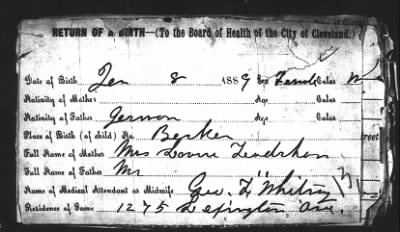 RETURN OF A BIRTH—(To the Board of Health of the City of Cleveland.)
Date of Birth Jan 8 1889 Sex Female Color W
Nativity of Mother Age Color
Nativity of Father German Age Color
Place of Birth (of child) No. Berken
Full Name of Mother Mrs Louise
Full Name of Father Mr "
Name of Medical Attendant or Midwife Geo. L Whitney
Residence of Same 1275 Lexington Ave.
treet